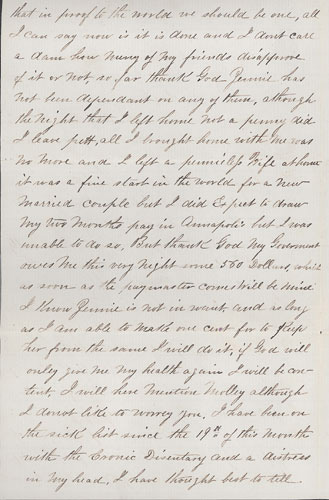 that in proof to the world we should be one, all
I can say now is it is done and I dont care
a dam how many of my friends disaprove
of it or not, so far thank God Jennie has
not been dependant on any of them, athough
the night that I left home not a penney did
I leave all I brought home with me was
no more and I left a penniless Wife at home
it was a fine start in the world for a new
married couple but I did Expect to draw
my two Months pay in Annapolis but I was
unable to do so, But thank God My Goverment
owes Me this very Night some 560 Dollars, which
as soon as the paymaster comes will be Mine
I know Jennie is not in want and as long
as I am able to make one cent for to Keep
her from the same I will do it, if God will
only give me my health again I will be con-
tent, I will here Mention Molley although
I donot like to worrey you, I have been on
the sick list since the 19th of this Month
with the Cronic Disentary and a distress
in my head, I have thought best to tell